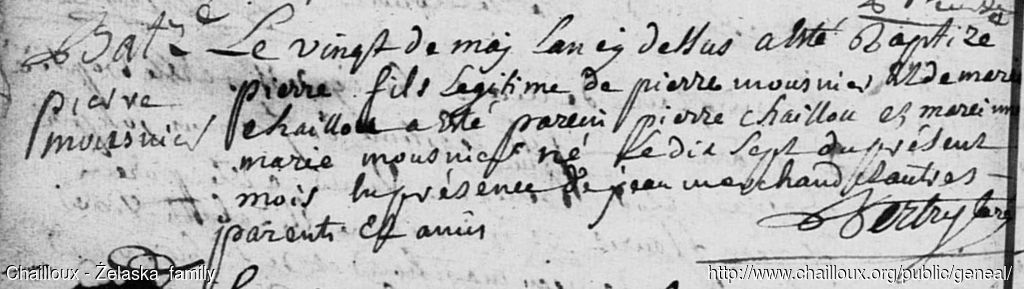 Bat.e
pierre
mousnier
Le vingt de maj lan cy dessus a esté Baptize
pierre fils legitime de pierre mousnier et de marie
chaillou a esté parein pierre chaillou et mareinne
marie mousnier né le dix sept du présent
mois En présence de jean marchand et autres
parents et amis
Chailloux - Żelaska family
http://www.chailloux.org/public/geneal/